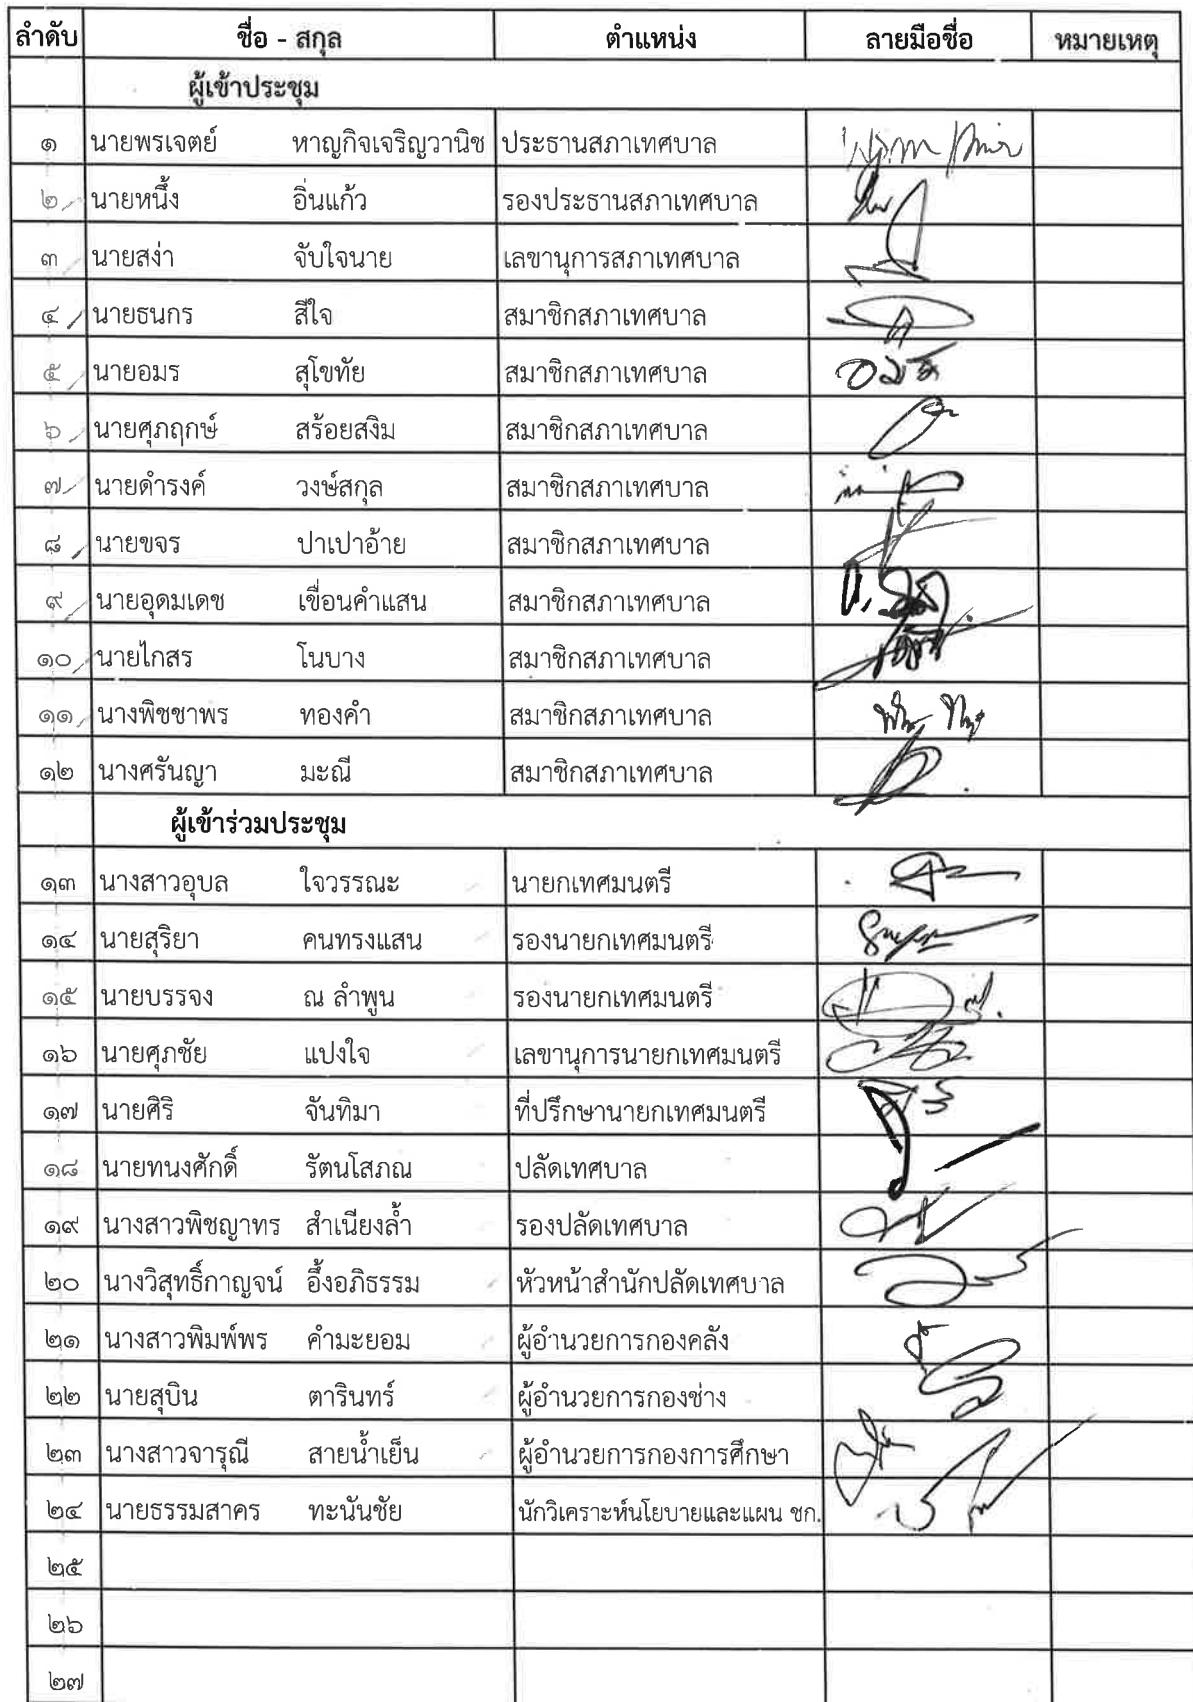 ลำดับ ชื่อ - สกุล ตำแหน่ง ลายมือชื่อ หมายเหตุ
ผู้เข้าประชุม
๑ นายพรเจตย์ หาญกิจเจริญวานิช ประธานสภาเทศบาล
๒ นายหนึ้ง อิ่นแก้ว รองประธานสภาเทศบาล
๓ นายสง่า จับใจนาย เลขานุการสภาเทศบาล
๔ นายธนกร สีใจ สมาชิกสภาเทศบาล
๕ นายอมร สุโขทัย สมาชิกสภาเทศบาล
๖ นายศุภฤกษ์ สร้อยสงิม สมาชิกสภาเทศบาล
๗ นายดำรงค์ วงษ์สกุล สมาชิกสภาเทศบาล
๘ นายขจร ปาเปาอ้าย สมาชิกสภาเทศบาล
๙ นายอุดมเดช เขื่อนคำแสน สมาชิกสภาเทศบาล
๑๐ นายไกสร โนบาง สมาชิกสภาเทศบาล
๑๑ นางพิชชาพร ทองคำ สมาชิกสภาเทศบาล
๑๒ นางศรันญา มะณี สมาชิกสภาเทศบาล
ผู้เข้าร่วมประชุม
๑๓ นางสาวอุบล ใจวรรณะ นายกเทศมนตรี
๑๔ นายสุริยา คนทรงแสน รองนายกเทศมนตรี
๑๕ นายบรรจง ณ ลำพูน รองนายกเทศมนตรี
๑๖ นายศุภชัย แปงใจ เลขานุการนายกเทศมนตรี
๑๗ นายศิริ จันทิมา ที่ปรึกษานายกเทศมนตรี
๑๘ นายทนงศักดิ์ รัตนโสภณ ปลัดเทศบาล
๑๙ นางสาวพิชญาทร สำเนียงล้ำ รองปลัดเทศบาล
๒๐ นางวิสุทธิ์กาญจน์ อึ้งอภิธรรม หัวหน้าสำนักปลัดเทศบาล
๒๑ นางสาวพิมพ์พร คำมะยอม ผู้อำนวยการกองคลัง
๒๒ นายสุบิน ตารินทร์ ผู้อำนวยการกองช่าง
๒๓ นางสาวจารุณี สายน้ำเย็น ผู้อำนวยการกองการศึกษา
๒๔ นายธรรมสาคร ทะนันชัย นักวิเคราะห์นโยบายและแผน ชก.
๒๕
๒๖
๒๗